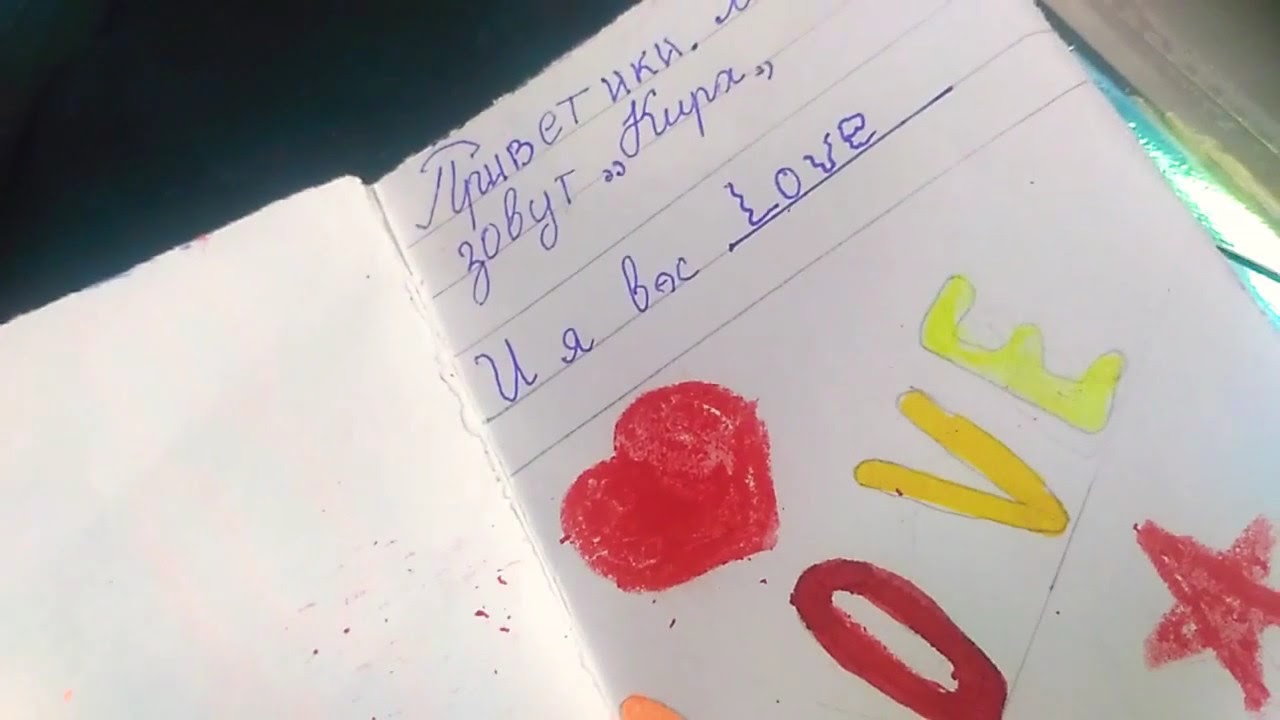 Приветики.
зовут „Кира”
И я вас Love
OVE